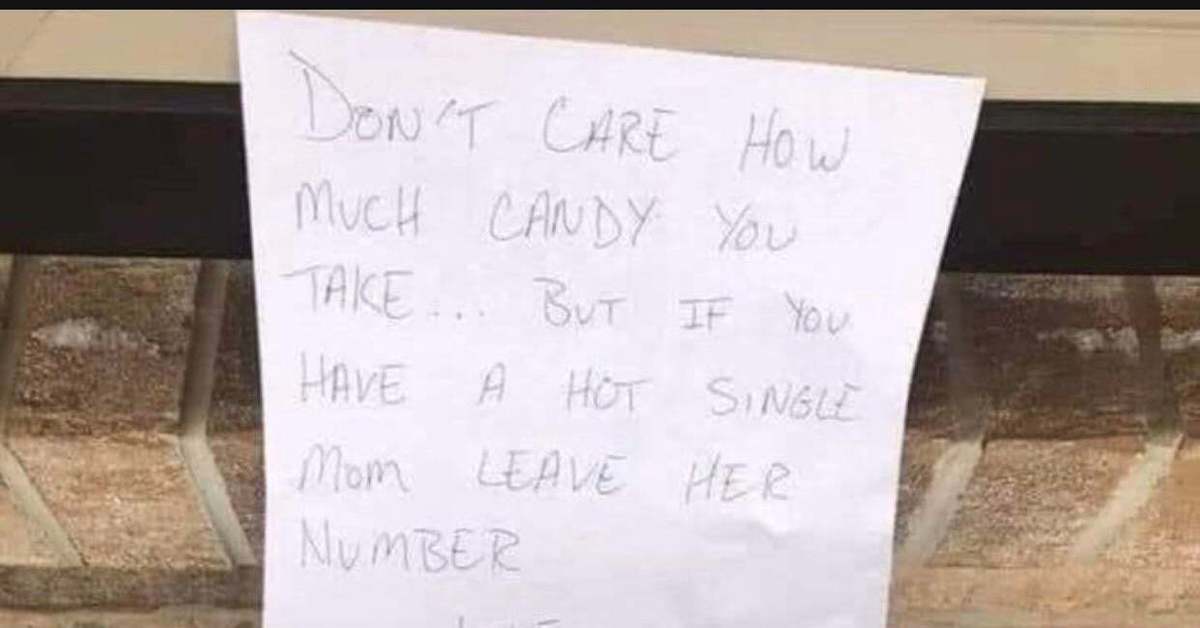 DON'T CARE HOW
MUCH CANDY YOU
TAKE... BUT IF YOU
HAVE A HOT SINGLE
MOM LEAVE HER
NUMBER